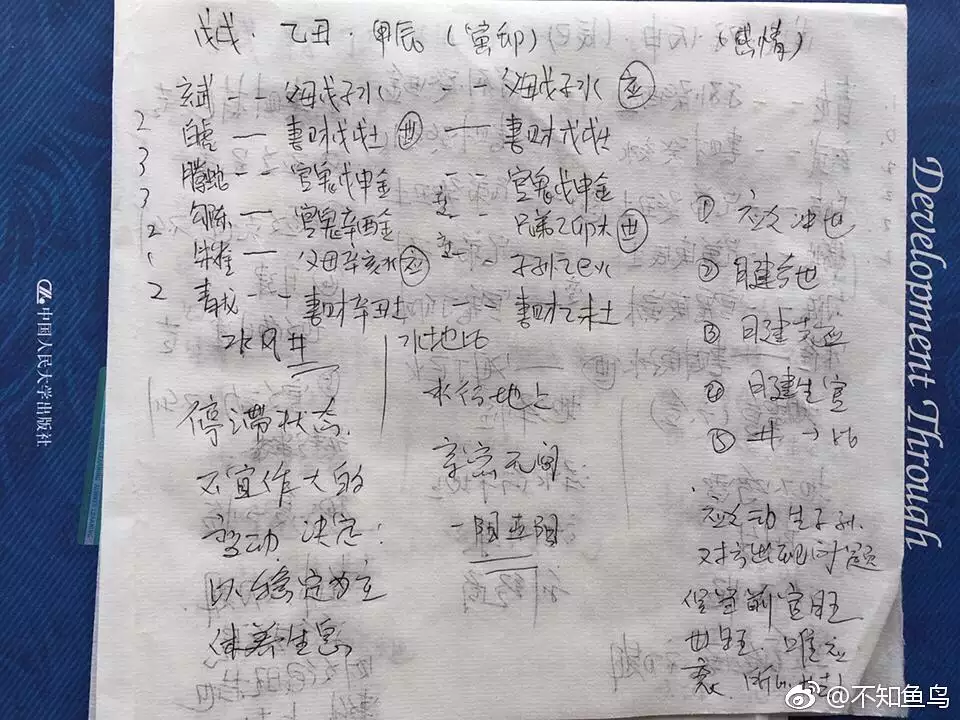 戊戌·乙丑·甲辰(寅卯) (感情)
玄武 -- 父母戊子水 -- 父母戊子水 应
2 白虎 — 妻财戊戌土 世 — 妻财戊戌土
3 腾蛇 -- 官鬼戊申金 -- 官鬼戊申金
3 勾陈 — 官鬼辛酉金 -- 兄弟乙卯木 世
2 朱雀 — 父母辛亥水 应 -- 子孙乙巳火
2 青龙 -- 妻财辛丑土 妻财乙未土
水风井
水地比
停滞状态.
不宜作大的
变动 决定:
以稳定为主
休养生息
水行地上
亲密无间
① 应爻冲世
② 日建合世
③ 月建克应
④ 月建生官
⑤ 井→比
应爻动生子孙.
对方出现问题
官旺
世旺. 唯应
衰.
Development Through
中国人民大学出版社
@不知鱼鸟